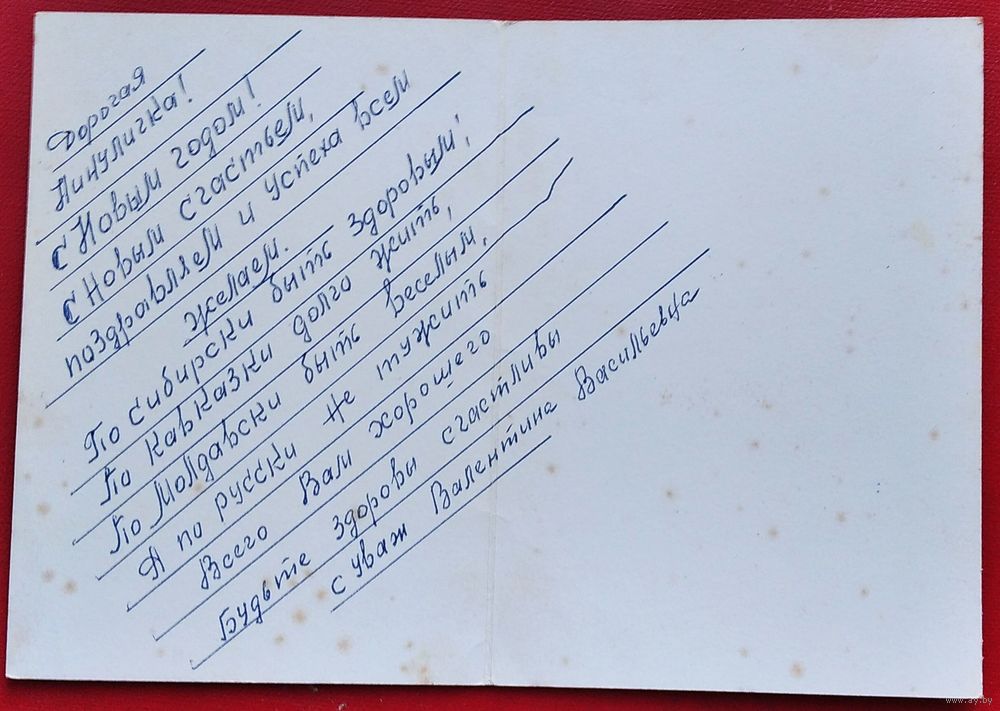 Дорогая
Нинуличка!
С Новым годом!
С Новым счастьем,
поздравляем и успеха всем
желаем.
По сибирски быть здоровым;
По Кавказки долго жить,
По Молдавски быть веселым,
А по русски не тужить
Всего Вам хорошего
Будьте здоровы счастливы
с уваж Валентина Васильевна
www.ay.by